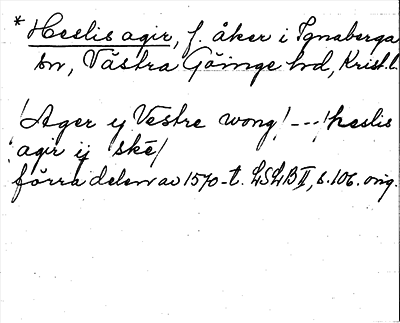 * Heslis agir, f. åker i Ignaberga
sn, Västra Göinge hd, Krist.l.
! Ager ij Vestre wong! --- ! heslis
agir ij skē /
förra delen av 1570-t. LSLB II, s. 106. orig.